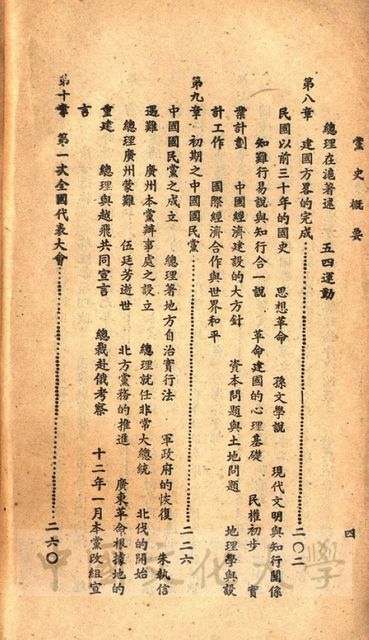 黨史概要
四
總理在滬著述　五四運動
第八章　建國方略的完成……二〇二
民國以前三十年的國史　思想革命　孫文學說　現代文明與知行關係
知難行易說與知行合一說　革命建國的心理基礎　民權初步　實
業計劃　中國經濟建設的大方針　資本問題與土地問題　地理學與設
計工作　國際經濟合作與世界和平
第九章　初期之中國國民黨……二二六
中國國民黨之成立　總理著地方自治實行法　軍政府的恢復　朱執信
遇難　廣州本黨辦事處之設立　總理就任非常大總統　北伐的開始
總理廣州蒙難　伍廷芳逝世　北方黨務的推進　廣東革命根據地的
重建　總理與越飛共同宣言　總裁赴俄考察　十二年一月本黨改組宣
言
第十章　第一次全國代表大會……二六〇
中國文化大學